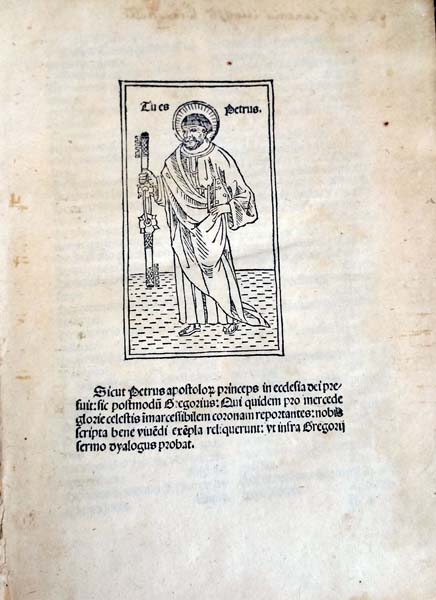 Tu es Petrus.
Sicut Petrus apostoloꝝ princeps in ecclesia dei pre-
fuit: sic postmodū Gregorius: Qui quidem pro mercede
glorie celestis īmarcessibilem coronam reportantes: nobis
scripta bene viuēdi exēpla reliquerunt: vt infra Gregorij
sermo dyalogus probat.